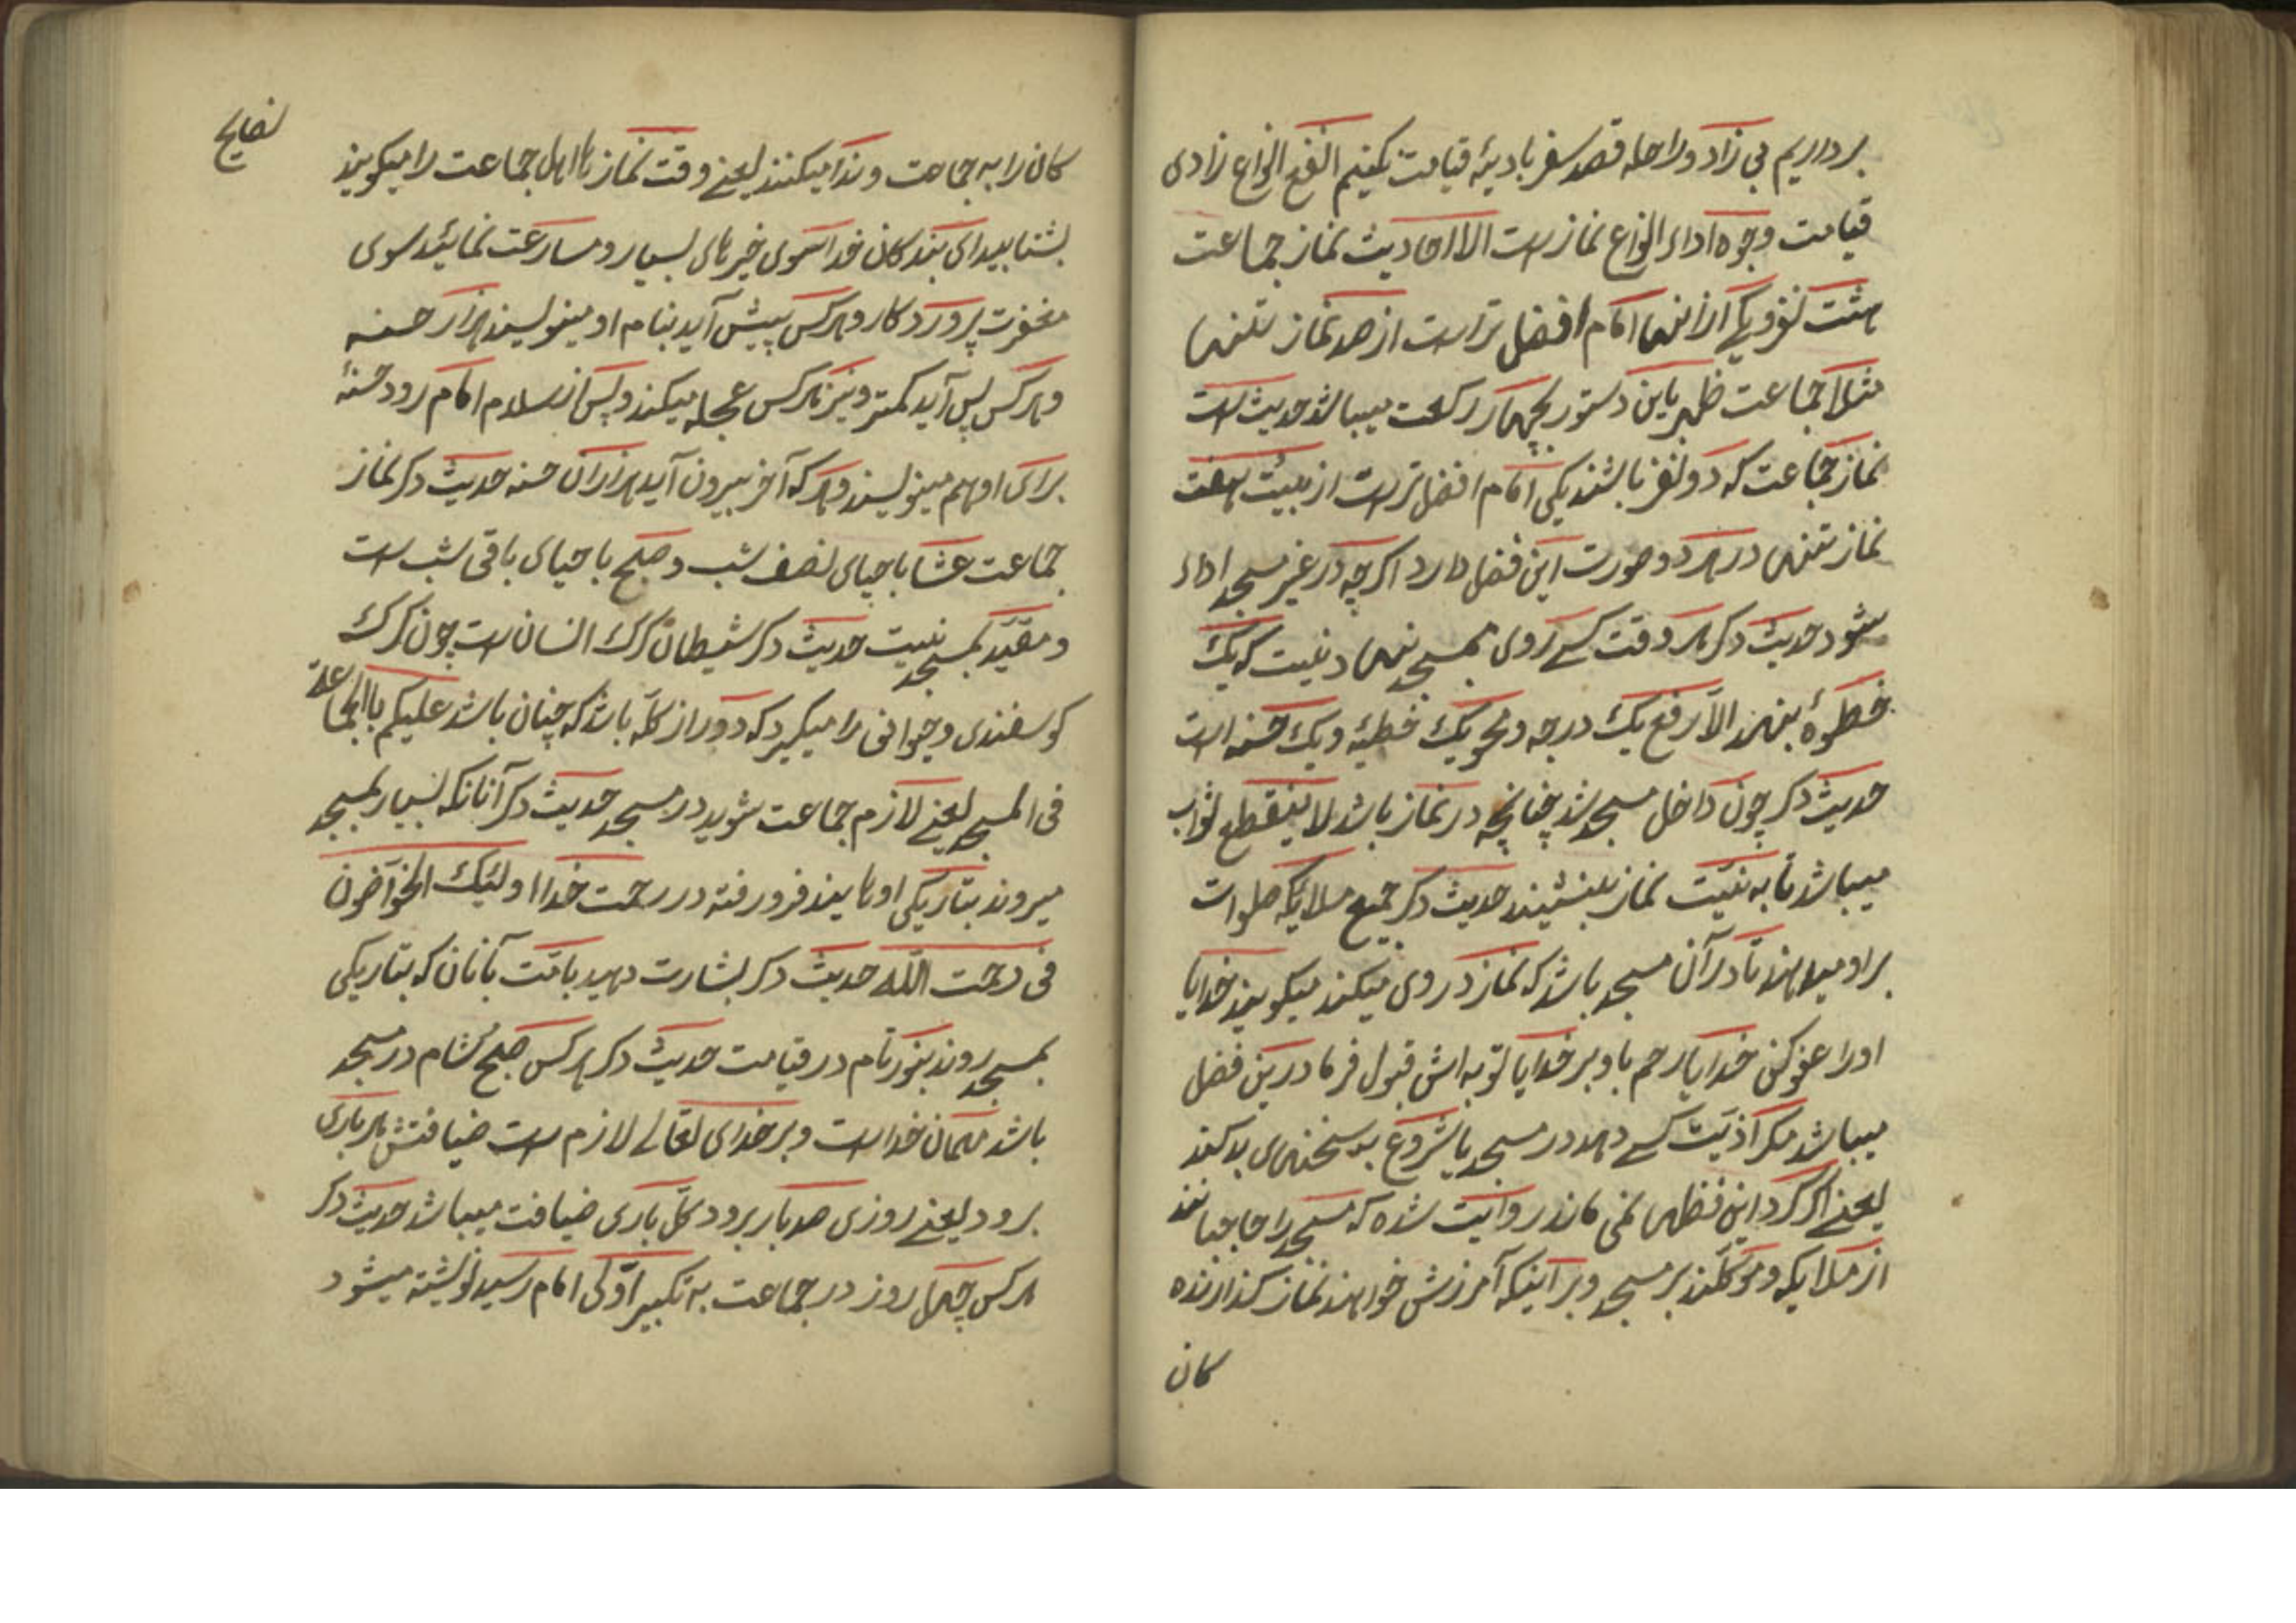 برداریم بی زاد و راحله قصد سفر بادیهٔ قیامت نکنیم انفع انواع زادی
قیامت وجوه اداء انواع نمازست الا احادیث نماز جماعت
هشت نفر یکی از انها امام افضل ترست از صد نماز تنها
مثلا جماعت ظهر باین دستور بچهار رکعت میباشد حدیث است
نماز جماعت که دو نفر باشند یکی امام افضل ترست از بیست هفت
نماز تنها در هر دو صورت این فضل دارد اکرچه در غیر مسجد اداء
شود حدیث دکر هر وقت کسے روی بمسجد نهاد نیست که یک
خطوهٔ بنهد الا رفع یک درجه و محو یک خطیه و یک حسنه است
حدیث دکر چون داخل مسجد شد چنانچه در نماز باشد لا ینقطع ثواب
میباشد تا به نیّت نماز بنشیند حدیث دکر جمیع ملایکه صلوات
براو میدهند تا در آن مسجد باشد که نماز در وی میکند میکویند خدایا
اورا عفو کن خدایا رحم باو بر خدایا توبه اش قبول فرما درین فضل
میباشد مکر اذیّت کسے دهد در مسجد یا شروع به سخنهای بد کند
یعنے اکر کرد این فضلها نمی ماند روایت شده که مسجد را جا
از ملایکه و موکلند بر مسجد و بر اینکه آمرزش خواهند نماز کذارنده
کان
نصایح
کان را به جماعت و ندا میکنند یعنے وقت نماز ها اهل جماعت را میکویند
بشتابید ای بندکان خدا سوی خیر های بسیار و مسارعت نمائید سوی
مغفرت پروردکار و هرکس پیش آید بنام او مینویسند هزار حسنه
و هرکس پس آید کمتر و نیز هرکس عجله میکند و پس از سلام امام رود حسنهٔ
برای او هم مینویسند و هرکه آخر بیرون آید هزاران حسنه حدیث دکر نماز
جماعت عشا باحیای نصف شب و صبح باحیای باقی شب ست
و مقیّد بمسجد نیست حدیث دکر شیطان کرک انسان ست چون کرک
کوسفندی و حیوانی را میکیرد که دور از کله باشد که چنان باشد علیکم باالجماعة
فی المسجد یعنے لازم جماعت شوید در مسجد حدیث دکر آنانکه بسیار بمسجد
میروند بتاریکی اوهایند فرو رفته در رحمت خدا اولئیک الخواضون
فی رحمت اللّه حدیث دکر بشارت دهید بامّت بآنان که بتاریکی
بمسجد روند بنور تام در قیامت حدیث دکر هرکس صبح شام در مسجد
باشد مهمان خداست و بر خدای تعالے لازم ست ضیافتش هر باری
برود یعنے روزی صد بار برود کلّ باری ضیافت میباشد حدیث دکر
هرکس چهل روز در جماعت به تکبیر اوّلی امام رسید نوشته میشود